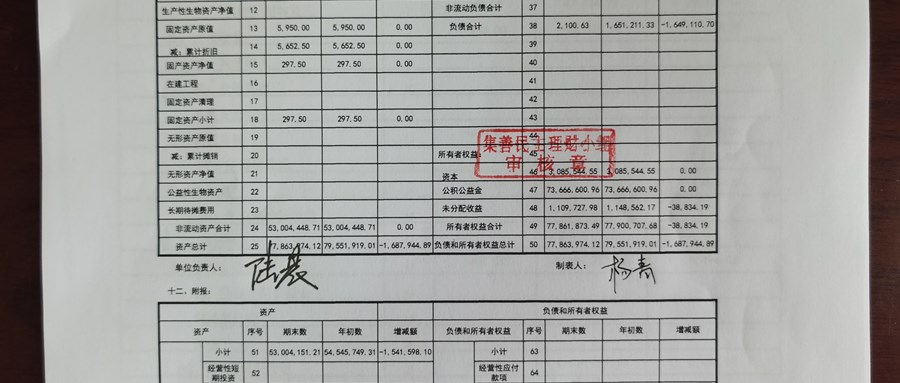 生产性生物资产净值 12 非流动负债合计 37
固定资产原值 13 5,950.00 5,950.00 0.00 负债合计 38 2,100.63 1,651,211.33 -1,649,110.70
减:累计折旧 14 5,652.50 5,652.50 0.00 39
固产资产净值 15 297.50 297.50 0.00 40
在建工程 16 41
固定资产清理 17 42
固定资产小计 18 297.50 297.50 0.00 43
无形资产原值 19 44
集善民主理财小组
减:累计摊销 20 所有者权益: 45
审核章
无形资产净值 21 资本 46 3,085,544.55 3,085,544.55 0.00
公益性生物资产 22 公积公益金 47 73,666,600.96 73,666,600.96 0.00
长期待摊费用 23 未分配收益 48 1,109,727.98 1,148,562.17 -38,834.19
非流动资产合计 24 53,004,448.71 53,004,448.71 0.00 所有者权益合计 49 77,861,873.49 77,900,707.68 -38,834.19
资产总计 25 77,863,974.12 79,551,919.01 -1,687,944.89 负债和所有者权益总计 50 77,863,974.12 79,551,919.01 -1,687,944.89
单位负责人: 制表人: 杨青
十二、附报:
资产 负债和所有者权益
资产 序号 期末数 年初数 增减额 负债和所有者权益 序号 期末数 年初数 增减额
小计 51 53,004,151.21 54,545,749.31 -1,541,598.10 小计 63
经营性短期投资 52 经营性应付款项 64